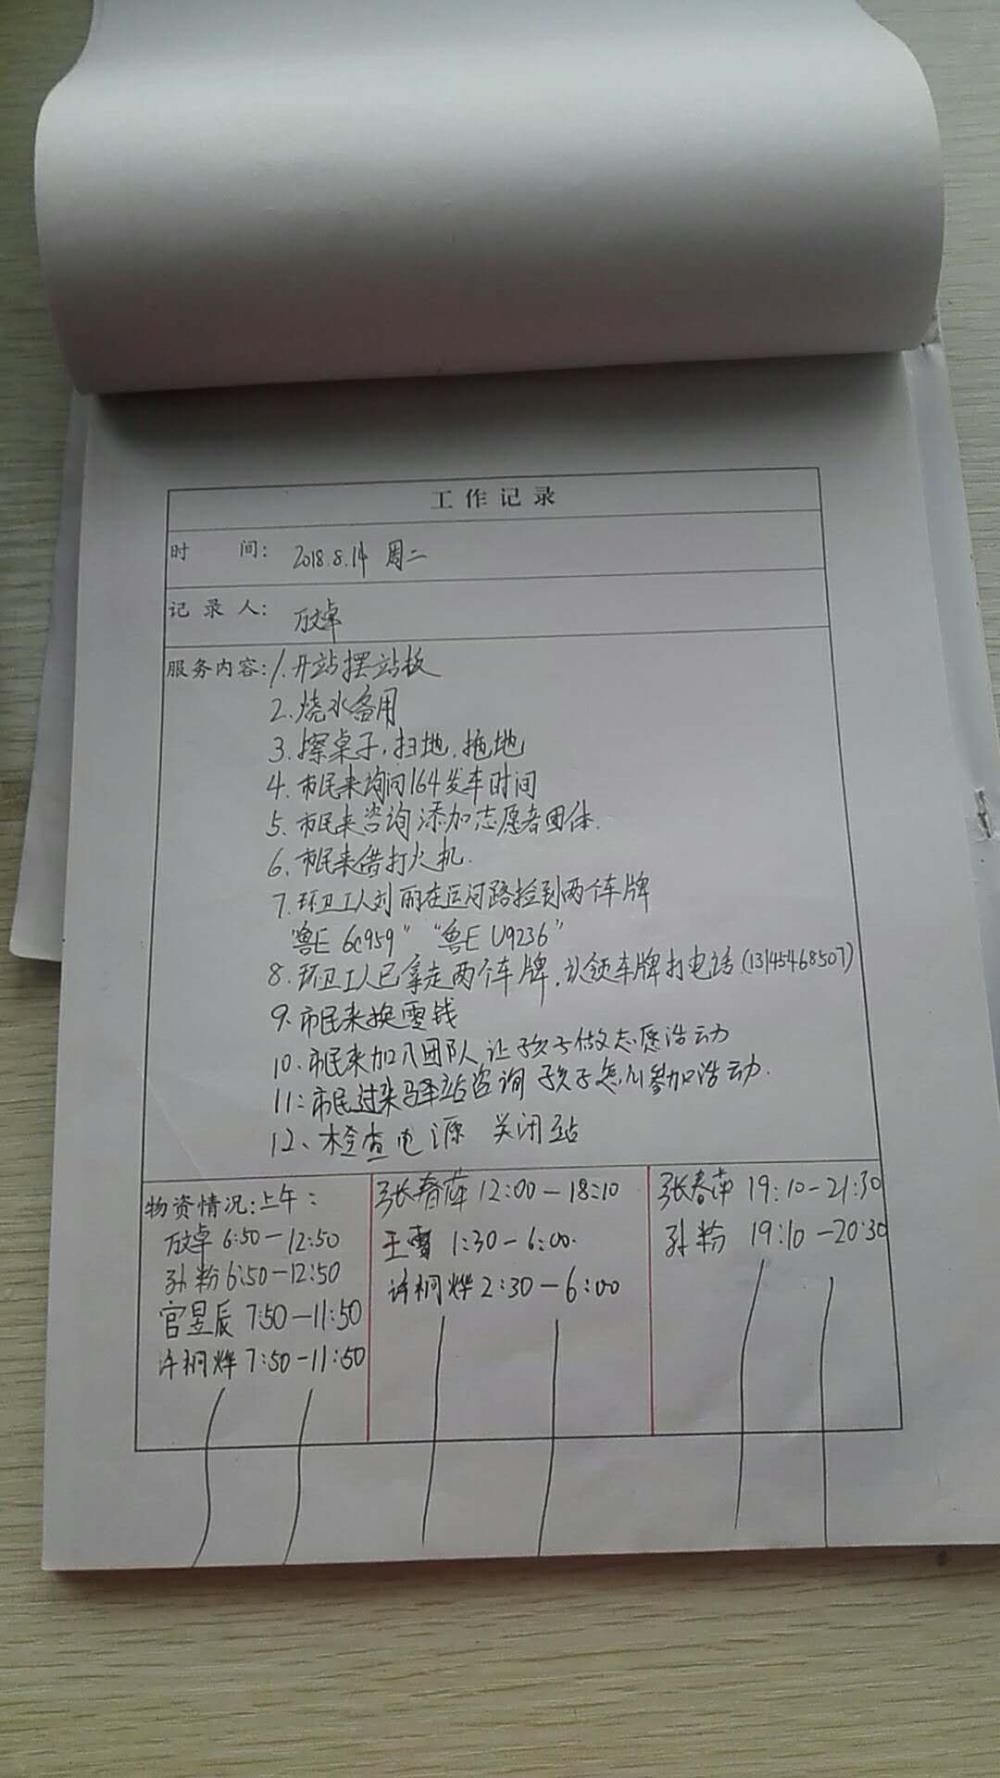 工作记录
时 间: 2018.8.14 周二
记录人: 万文卓
服务内容: 1.开站摆站板
2.烧水备用
3.擦桌子,扫地,拖地
4.市民来询问164发车时间
5.市民来咨询添加志愿者团体.
6.市民来借打火机.
7.环卫工人刘丽在运河路捡到两个车牌
"鲁E 6C959" "鲁E U9236"
8.环卫工人已拿走两个车牌,认领车牌打电话(13145468507)
9.市民来换零钱
10.市民来加入团队让孩子做志愿活动
11:市民过来驿站咨询孩子怎么参加活动.
12、检查电源 关闭站
物资情况:上午:
万文卓 6:50-12:50
孙粉 6:50-12:50
官昱辰 7:50-11:50
许桐烨 7:50-11:50
张春萍 12:00-18:10
王雪 1:30-6:00.
许桐烨 2:30-6:00
张春萍 19:10-21:30
孙粉 19:10-20:30